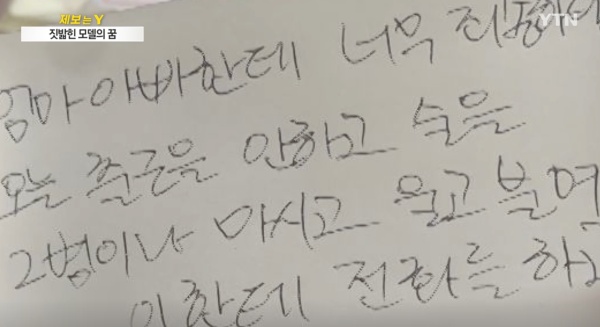 제보는Y
짓밟힌 모델의 꿈
YTN
엄마아빠한테 너무 죄송하다
오늘 출근을 안하고 술을
2병이나 마시고 울고불며
이한테 전화를 하고